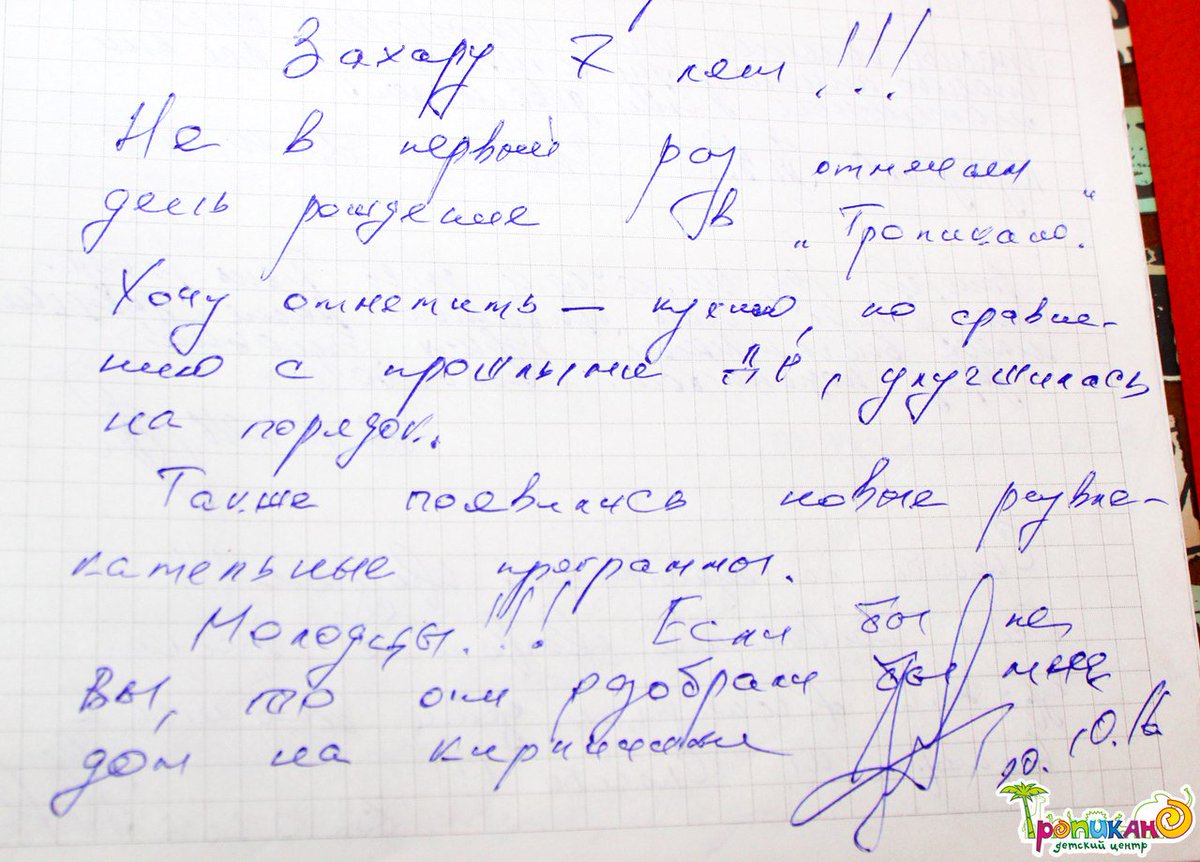 Захару 7 лет!!!
Не в первый раз отмечаем
день рождение в „Тропикано."
Хочу отметить – кухню, по сравне-
нию с прошлыми Д.Р., улучшилась
на порядок.
Также появились новые развле-
кательные программы.
Молодцы!!! Если бы не
вы, то они разобрали бы мне
дом на кирпичики
10.10.16
Тропикано
детский центр